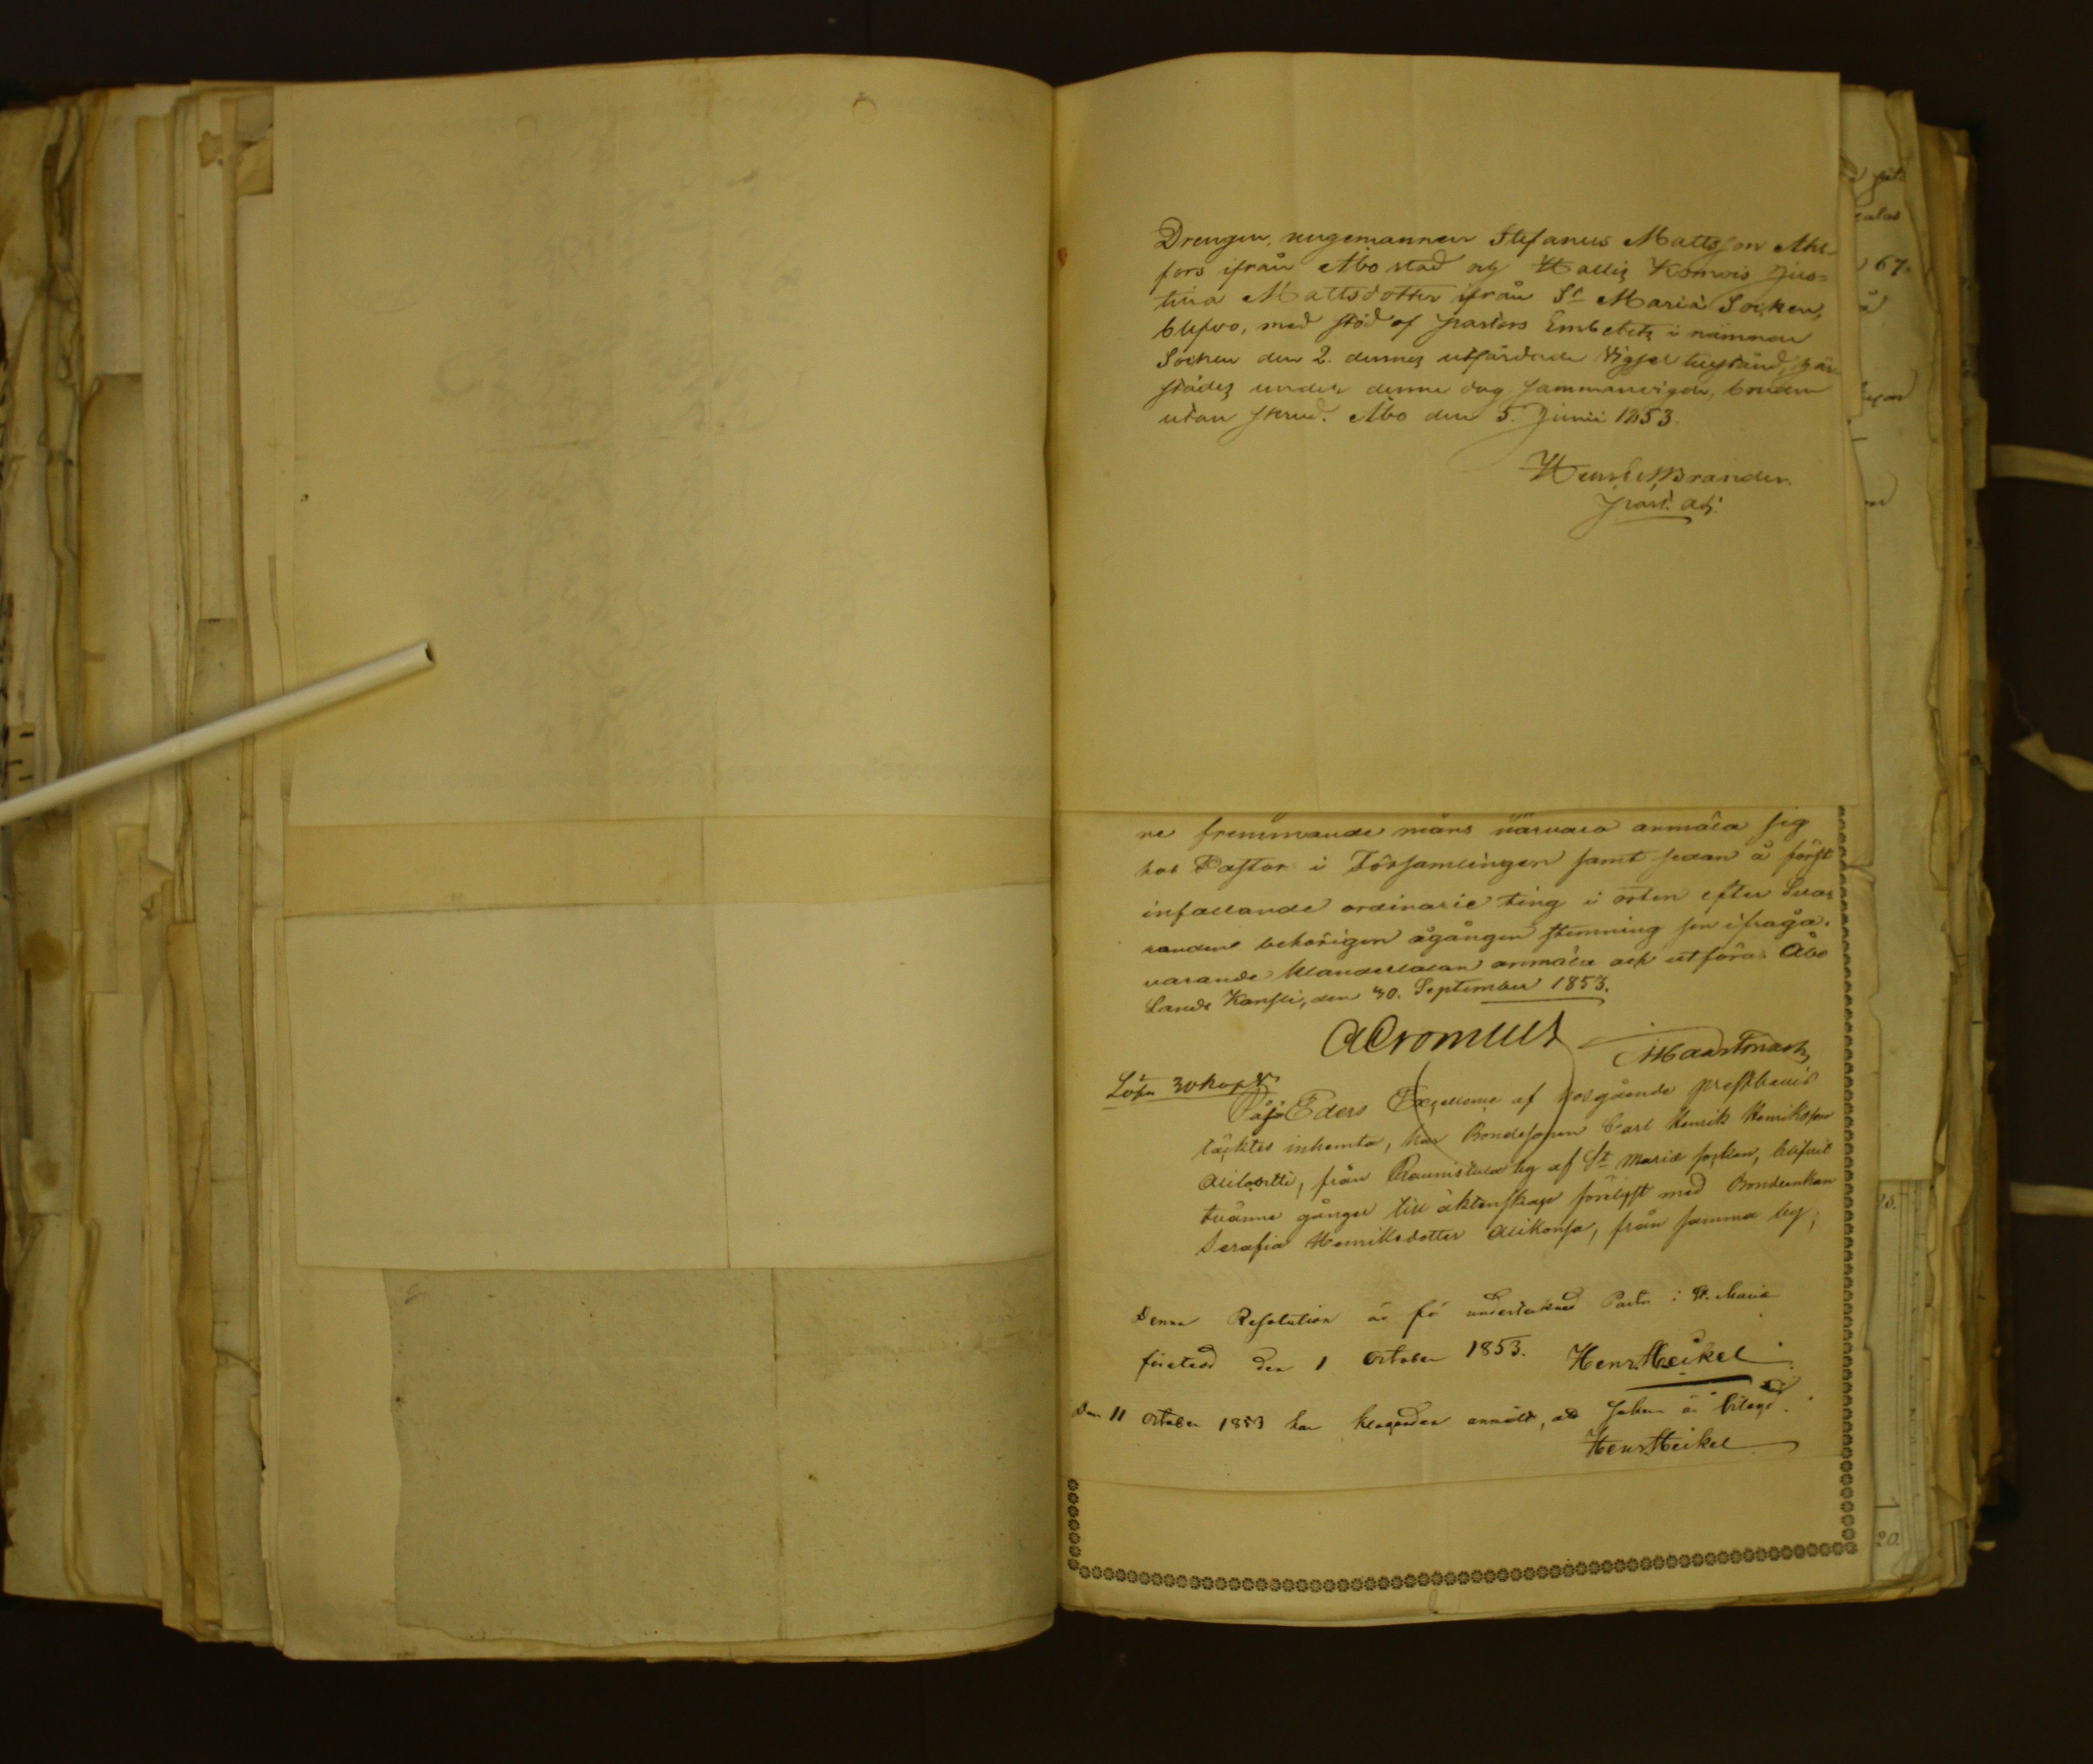 Drengen, ungemannen Stefanus Mattsson Ahl-
fors ifrån Åbo stad och Jus-
tina Mattsdotter ifrån St Mariæ Socken,
blefvo, med stöd af Pastors Embetets i nämnde
Socken den 2. dennes utfärdade Vigsel tillstånd, här-
städes under denne dag sammanvigde, bruden
utan skrud. Åbo den 5. Junii 1853.
Henr. Brander.
Past. adj.
ne fremmande mäns närvaro anmäla sig
hos Pastor i Församlingen samt sedan å först
infallande ordinarie ting i orten efter Sva-
randen behörigen ågången stemning sin ifråga-
varande klandertalan anmäla och utföra. Åbo
Lands Kansli, den 30. September 1853.
Lösn 30 kop Sr
Eders Excellence af förgående prestbevis
täcktes inhemta, har Bondesonen Carl Henrik Henriksson
från Raunistula by af St Mariæ socken, blifvit
tvänne gånger till äktenskap förelyst med Bondeenkan
Serafia Henriksdotter Alikonsa, från samma by;
Denna Resolution är för undertecknad Pastor i St. Marie
företedd den 1 October 1853. Henr. Heikel
Den 11 October 1853 har klaganden anmält, att saken är bilagd.
Henr. Heikel
67.
20.